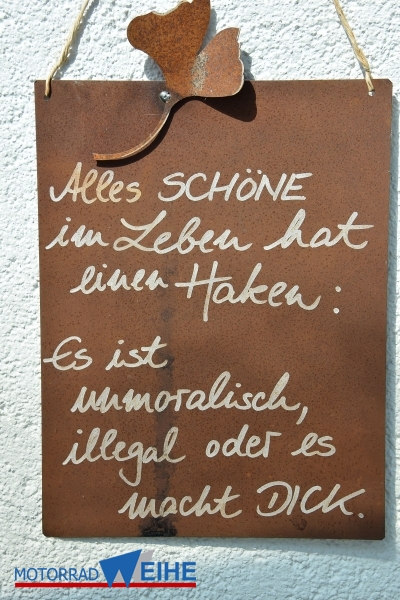 Alles SCHÖNE
im Leben hat
einen Haken:
Es ist
unmoralisch,
illegal oder es
macht DICK.
MOTORRAD WEIHE